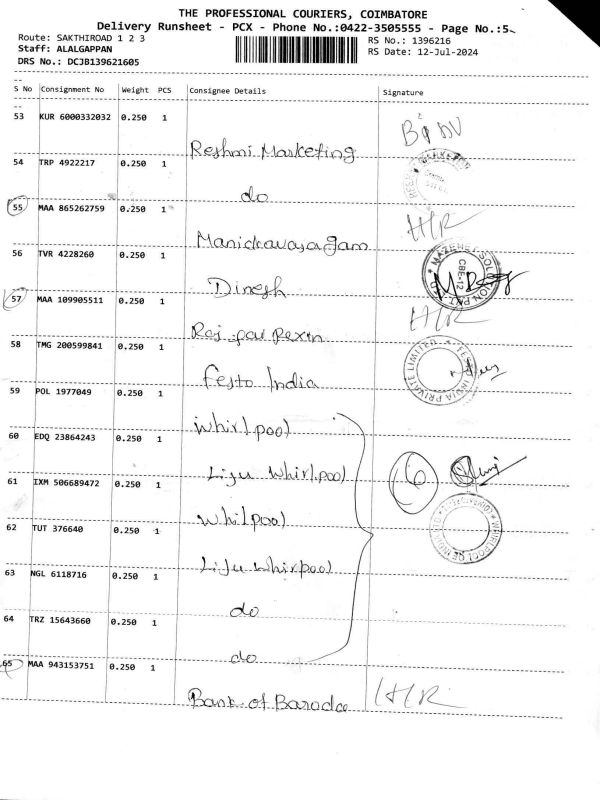 THE PROFESSIONAL COURIERS, COIMBATORE
Delivery Runsheet - PCX - Phone No.:0422-3505555 - Page No.:5
Route: SAKTHIROAD 1 2 3
RS No.: 1396216
Staff: ALALGAPPAN
RS Date: 12-Jul-2024
DRS No.: DCJB139621605
S No Consignment No Weight PCS Consignee Details Signature
53 KUR 6000332032 0.250 1
Reshmi Marketing
54 TRP 4922217 0.250 1
do
55 MAA 865262759 0.250 1 HR
Manickavasagam
56 TVR 4228260 0.250 1
MAZENET SOLUTION PVT
CBE-12
Dinesh
57 MAA 109905511 0.250 1 HR
Raj pal Rexin
58 TMG 200599841 0.250 1
FESTO INDIA PRIVATE LIMITED
Festo India
59 POL 1977049 0.250 1
Whirlpool
60 EDQ 23864243 0.250 1
6
Liju Whirlpool
61 IXM 506689472 0.250 1
Whilpool
62 TUT 376640 0.250 1
Liju Whirpool
63 NGL 6118716 0.250 1
do
64 TRZ 15643660 0.250 1
do
65 MAA 943153751 0.250 1
Bank of Baroda HR